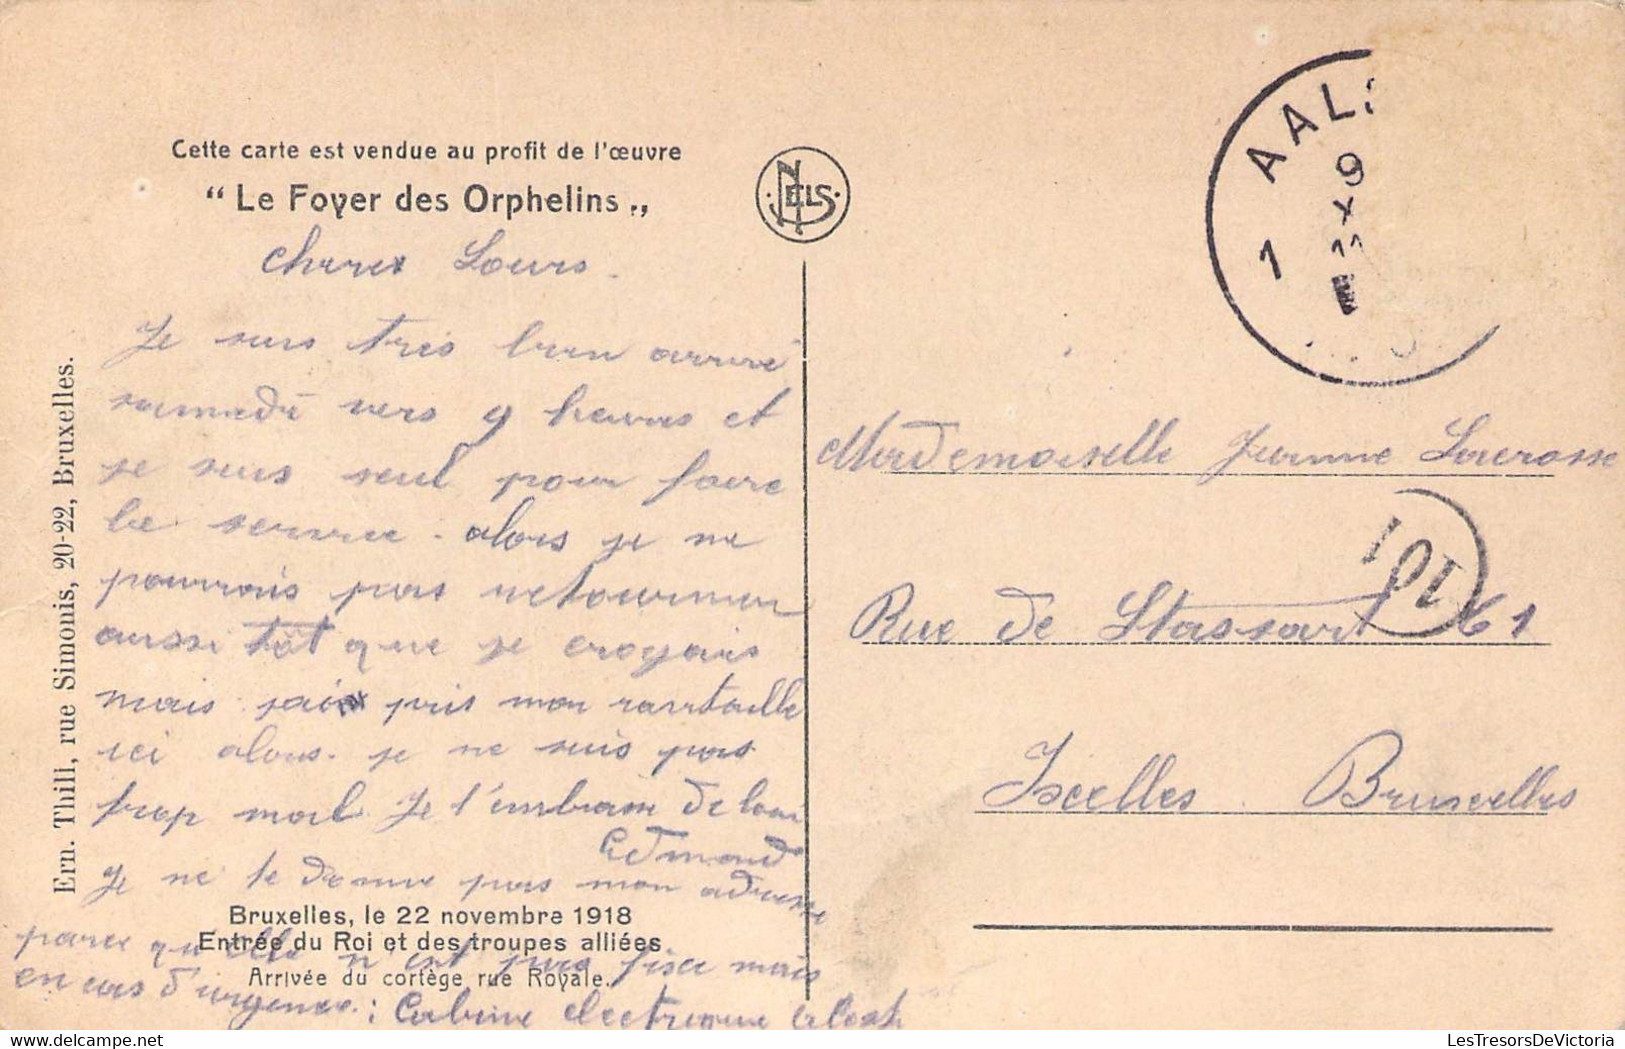 Cette carte est vendue au profit de l'œuvre
“ Le Foyer des Orphelins „
NELS
Je suis très bien arrivé
samedi vers 9 heures et
je suis seul pour faire
le service. alors je ne
pourrais pas retourner
aussi tôt que je croyais
mais jai pris mon
ici alors. je ne suis pas
trop mal Je t'embrasse de loin
Edmond
Je ne te donne pas mon adresse
parce qu'elle n'est pas fixe mais
en cas d'urgence : Cabine electrique
Bruxelles, le 22 novembre 1918
Entrée du Roi et des troupes alliées
Arrivée du cortège rue Royale.
Ern. Thill, rue Simonis, 20-22, Bruxelles.
AAL
1
Mademoiselle Jeanne Lacrosse
101
Rue de Stassart 61
Ixelles Bruxelles
LesTresorsDeVictoria
delcampe.net